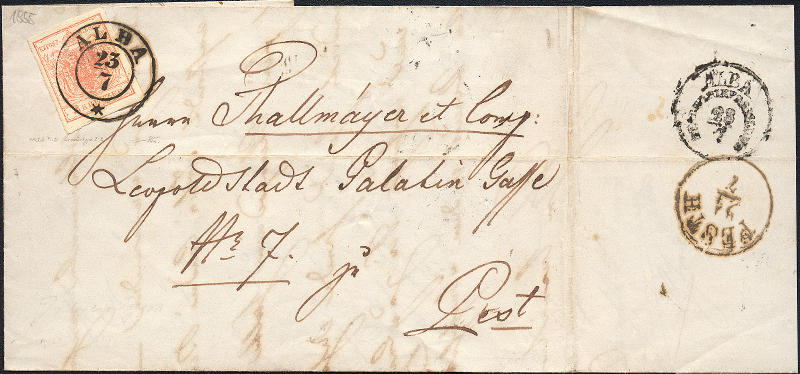 1855
ALBA
23
7
Herrn Thallmayer et Comp:
Leopoldstadt Palatin Gasse
Nr 7. zu
Pest
ALBA
23
7
PESTH